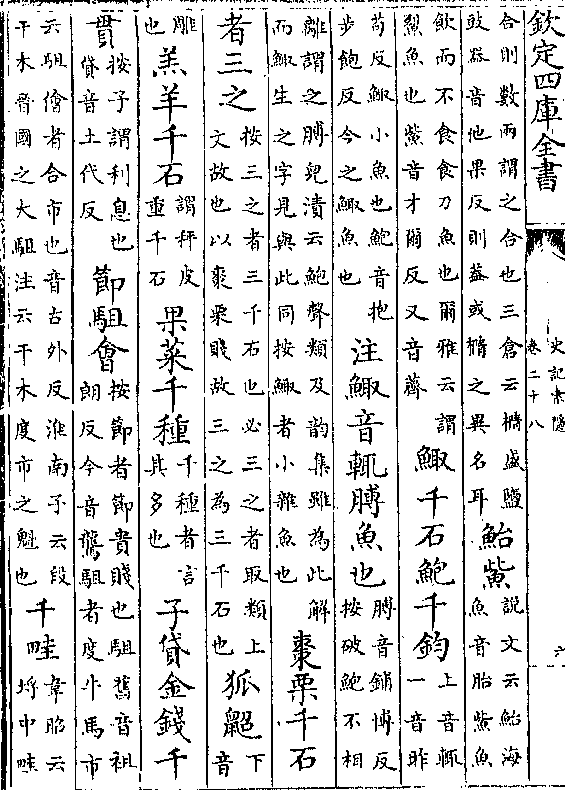 欽定四庫全書
史記索隱
卷二十八
六
合則數兩謂之合也三倉云橢盛鹽
豉器音他果反則蓋或橢之異名耳
鮐鮆
說文云鮐海
魚音胎鮆魚
飲而不食食刀魚也爾雅云謂
鮤魚也鮆音才爾反又音薺
鯫千石鮑千鈞
上音輒
一音昨
苟反鯫小魚也鮑音抱
步飽反今之鯫魚也
注鯫音輒膊魚也
膊音鋪博反
按破鮑不相
離謂之膊皃漬云鮑聲類及韻集雖為此解
而鯫生之字見與此同按鯫者小雜魚也
棗栗千石
者三之
按三之者三千石也必三之者取類上
文故也以棗栗賤故三之為三千石也
狐鼦
下
音
雕
也
羔羊千石
謂秤皮
重千石
果菜千種
千種者言
其多也
子貸金錢千
貫
按子謂利息也
貸音土代反
節駔會
按節者節貴賤也駔舊音祖
朗反今音驡駔者度牛馬市
云駔儈者合市也音古外反淮南子云段
干木晉國之大駔注云干木度市之魁也
千畦
韋昭云
埒中畦